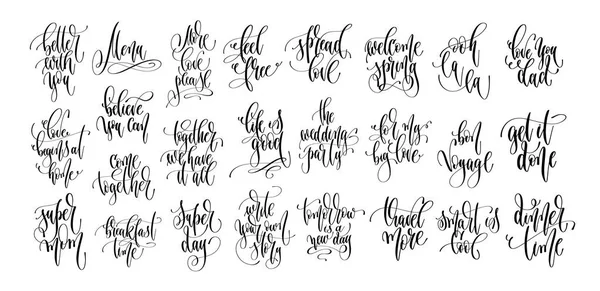 better
with
you
Menu
More
love
please
feel
free
spread
love
welcome
spring
ooh
la la
love you
dad
love
begins at
home
believe
you can
come
together
together
we have
it all
life is
good
the
wedding
party
for my
big love
bon
voyage
get it
done
super
mom
breakfast
time
super
day
write
your own
story
tomorrow
is a
new day
travel
more
smart is
cool
dinner
time